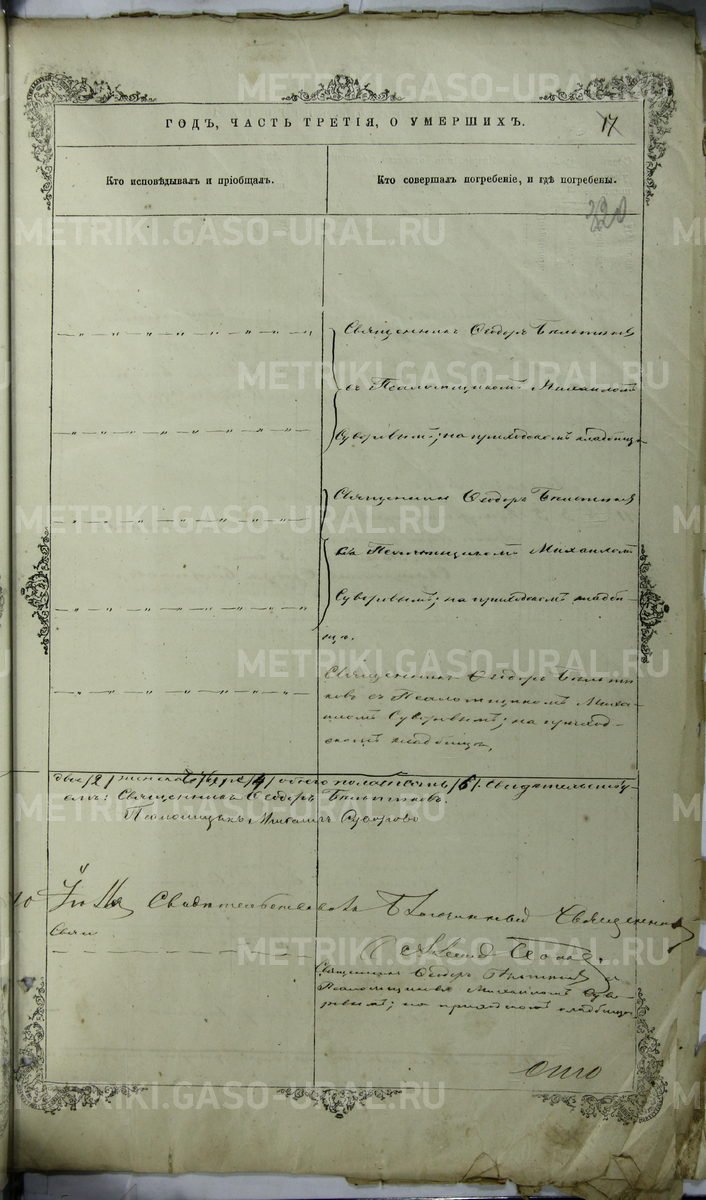 ГОДЪ, ЧАСТЬ ТРЕТІЯ, О УМЕРШИХЪ.
17
Кто исповѣдывалъ и пріобщалъ.
Кто совершалъ погребеніе, и гдѣ погребены.
320
METRIKI.GASO-URAL.RU
Священникъ Ѳеодоръ
съ Псаломщикомъ Михаиломъ
Суворвымъ; на приходскомъ кладбищѣ
Священникъ Ѳеодоръ
съ Псаломщикомъ Михаиломъ
Суворвымъ; на приходскомъ кладби-
щѣ.
Священникъ Ѳеодоръ
ковъ съ Псаломщикомъ Миха-
иломъ Суворвымъ; на приход-
скомъ кладбищѣ,
двое /2/ женска /4/ обоего пола шесть /6/. Свидѣтельству-
емъ: Священникъ Ѳеодоръ
Псаломщикъ Михаилъ Суворовъ
Свидѣтельствовалъ Благочинный Священникъ
Священникъ Ѳеодоръ съ
Псаломщикомъ Михаиломъ Суво-
рвымъ; на приходскомъ кладбищѣ